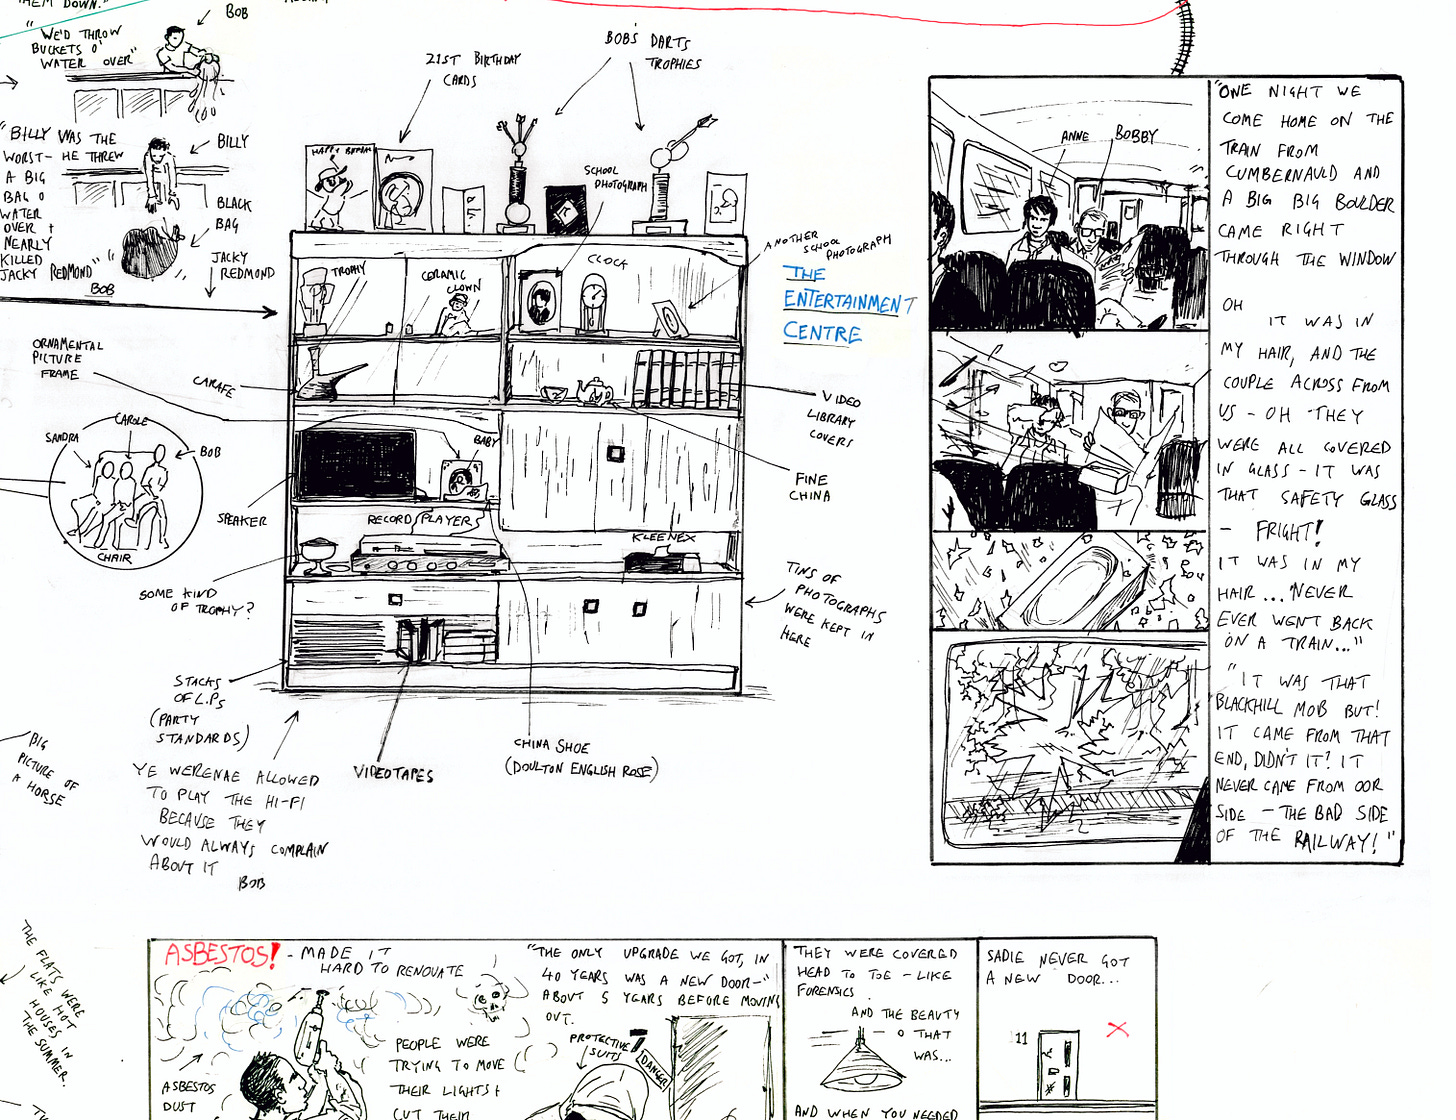 THEM DOWN."
BOB
"WE'D THROW
BUCKETS O'
WATER OVER"
"BILLY WAS THE
WORST - HE THREW
A BIG
BAG O
WATER
OVER +
NEARLY
KILLED
JACKY REDMOND"
BOB
BILLY
BLACK
BAG
JACKY
REDMOND
21ST BIRTHDAY
CARDS
BOB'S DARTS
TROPHIES
SCHOOL
PHOTOGRAPH
ANOTHER
SCHOOL
PHOTOGRAPH
THE
ENTERTAINMENT
CENTRE
TROPHY
CERAMIC
CLOWN
CLOCK
ORNAMENTAL
PICTURE
FRAME
CARAFE
VIDEO
LIBRARY
COVERS
CAROLE
SANDRA
BOB
CHAIR
BABY
FINE
CHINA
SPEAKER
RECORD PLAYERS
KLEENEX
SOME KIND
OF TROPHY?
TINS OF
PHOTOGRAPHS
WERE KEPT IN
HERE
STACKS
OF L.Ps
(PARTY
STANDARDS)
VIDEOTAPES
CHINA SHOE
(DOULTON ENGLISH ROSE)
BIG
PICTURE OF
A HORSE
YE WERENAE ALLOWED
TO PLAY THE HI-FI
BECAUSE THEY
WOULD ALWAYS COMPLAIN
ABOUT IT
BOB
ANNE
BOBBY
"ONE NIGHT WE
COME HOME ON THE
TRAIN FROM
CUMBERNAULD AND
A BIG BIG BOULDER
CAME RIGHT
THROUGH THE WINDOW
OH
IT WAS IN
MY HAIR, AND THE
COUPLE ACROSS FROM
US - OH THEY
WERE ALL COVERED
IN GLASS - IT WAS
THAT SAFETY GLASS
- FRIGHT!
IT WAS IN MY
HAIR... NEVER
EVER WENT BACK
ON A TRAIN..."
"IT WAS THAT
BLACKHILL MOB BUT!
IT CAME FROM THAT
END, DIDN'T IT? IT
NEVER CAME FROM OOR
SIDE - THE BAD SIDE
OF THE RAILWAY!"
THE FLATS WERE
LIKE HOT
HOUSES IN
THE SUMMER.
ASBESTOS! - MADE IT
HARD TO RENOVATE
ASBESTOS
DUST
PEOPLE WERE
TRYING TO MOVE
THEIR LIGHTS +
CUT THEIR
"THE ONLY UPGRADE WE GOT, IN
40 YEARS WAS A NEW DOOR-"
ABOUT 5 YEARS BEFORE MOVING
OUT.
PROTECTIVE
SUITS
DANGER
THEY WERE COVERED
HEAD TO TOE - LIKE
FORENSICS
AND THE BEAUTY
O THAT
WAS...
AND WHEN YOU NEEDED
SADIE NEVER GOT
A NEW DOOR...
11